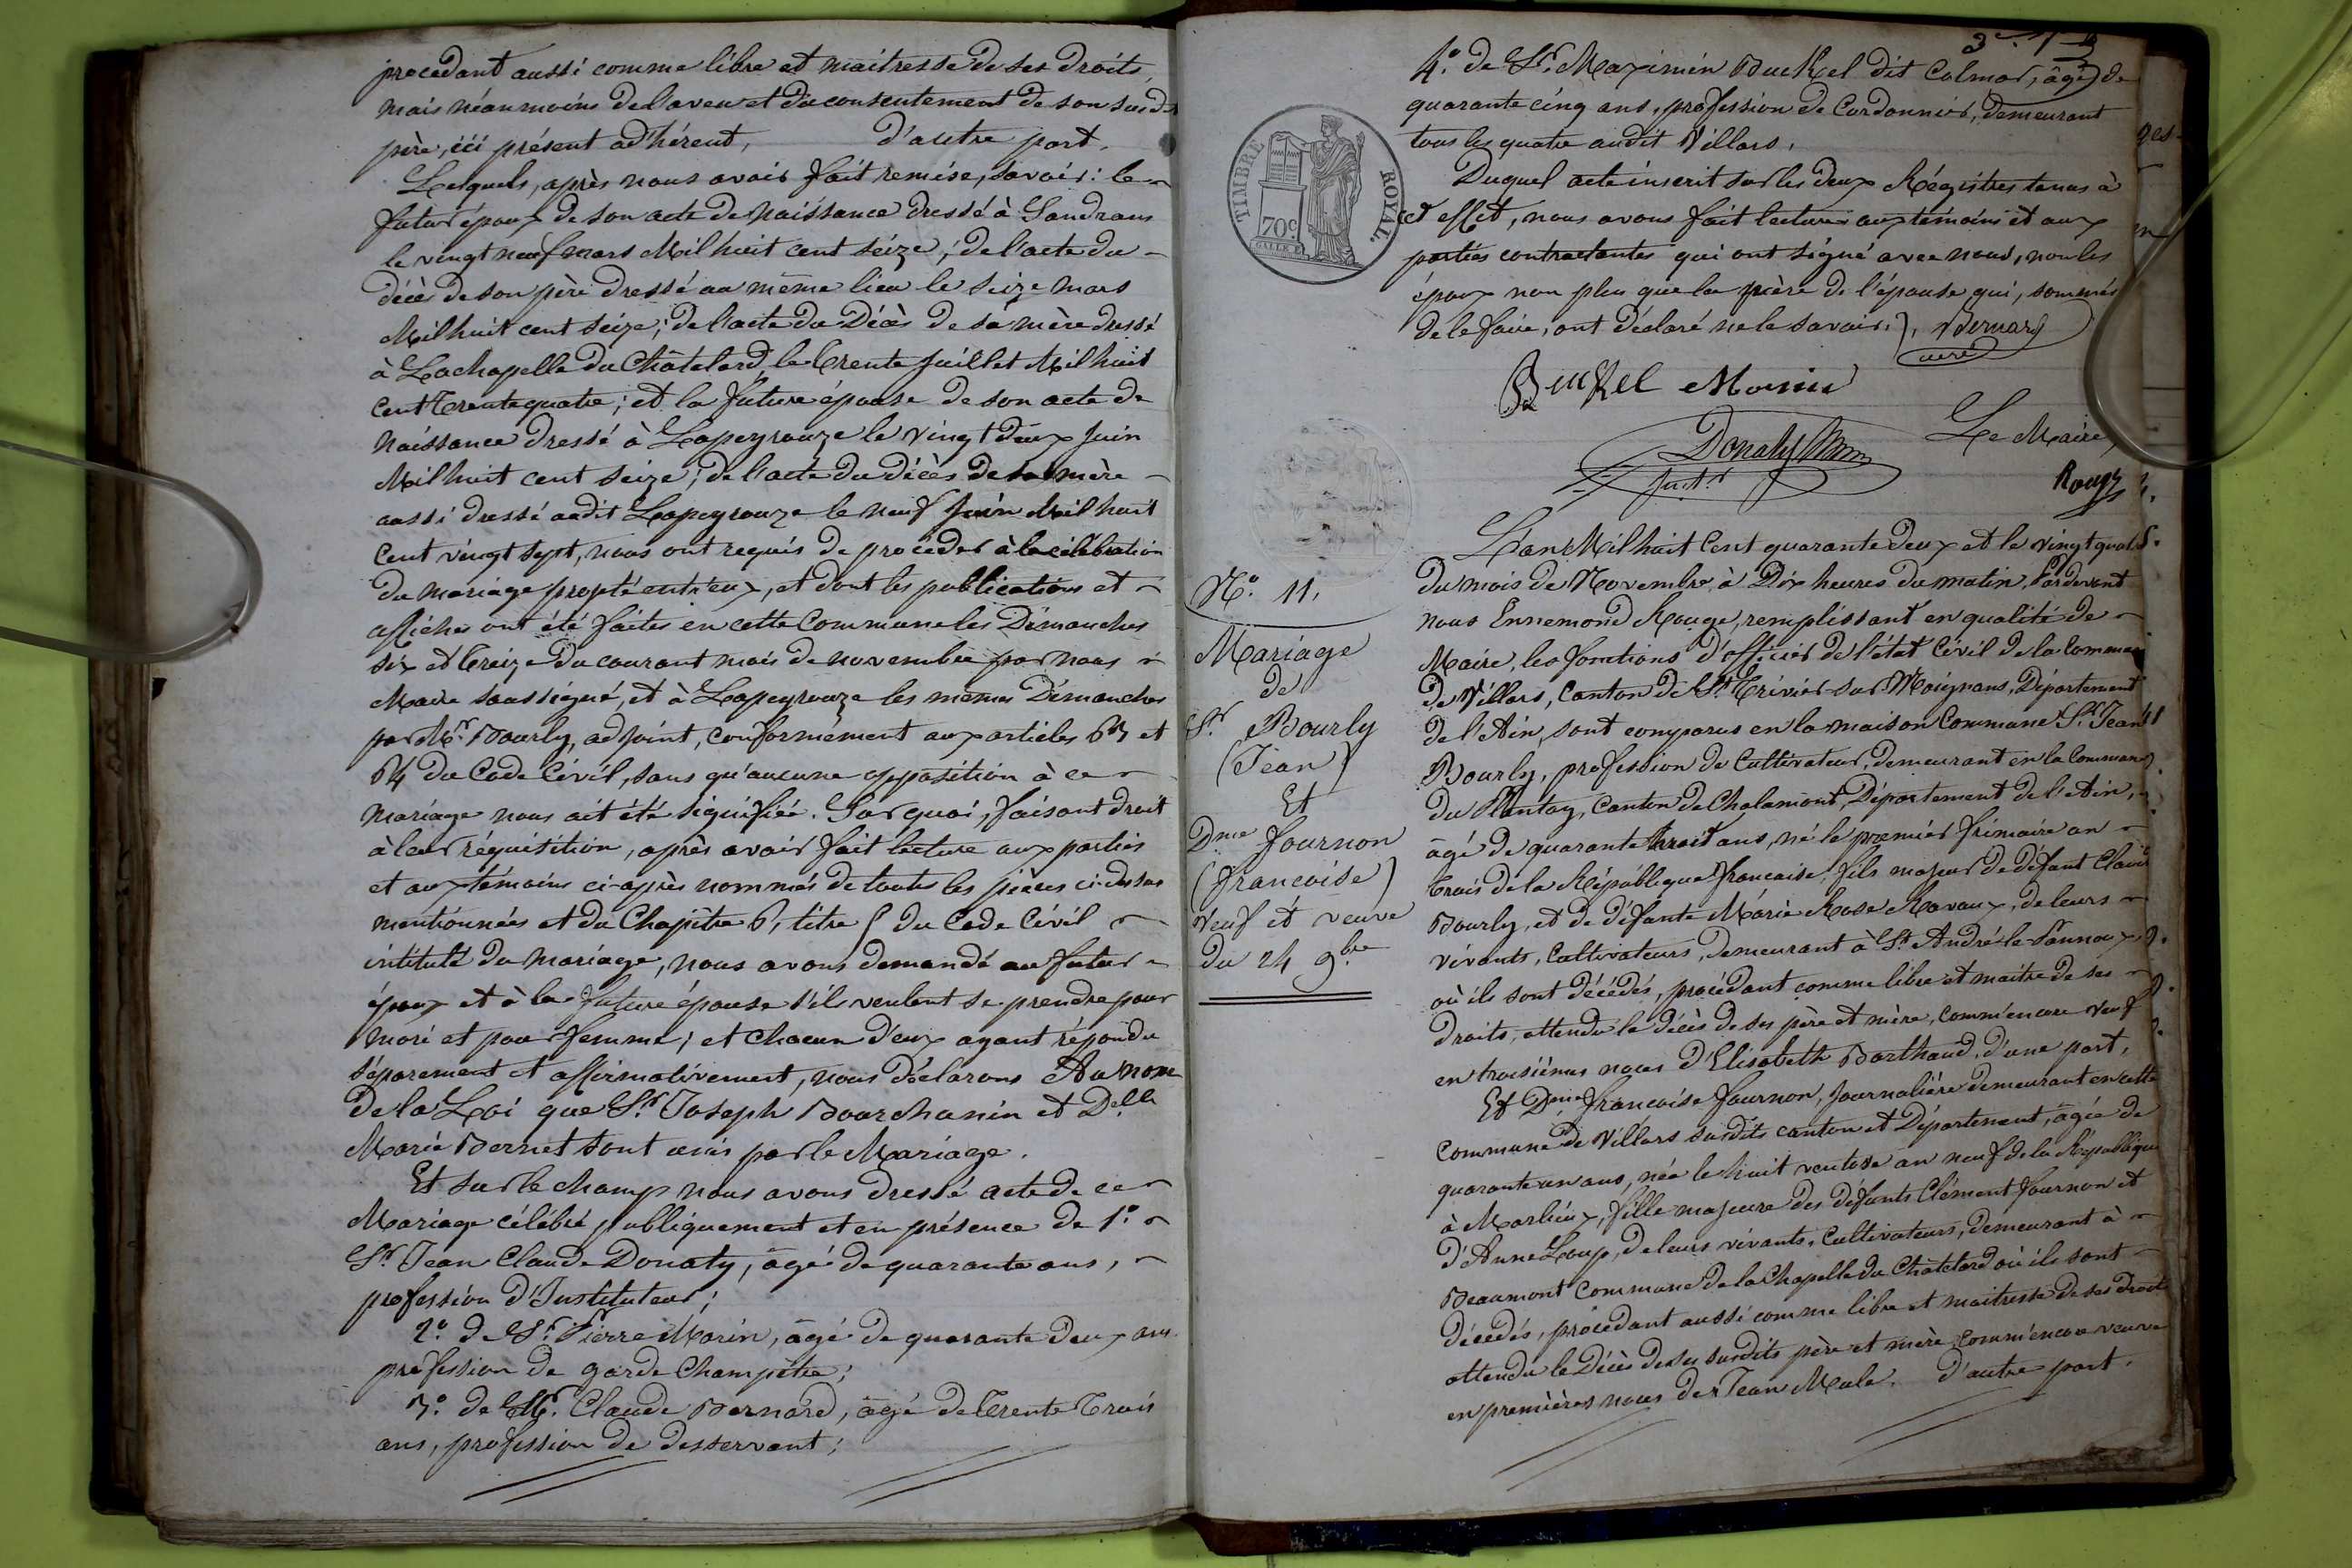 procédant aussi comme libre et maitresse de ses droits,
mais néanmoins de l'aveu et du consentement de son susdt
père, ici présent adhérent, d'autre part.
Lesquels, après nous avoir fait remise, savoir: le
futur époux de son acte de naissance dressé à Sandrans
le vingt neuf mars Mil huit cent seize; de l'acte du
décès de son père dressé au même lieu le seize mars
Mil huit cent seize; de l'acte du Décès de sa mère dressé
à Lachapelle du Châtelard, le trente Juillet Mil huit
cent trente quatre; et la future épouse de son acte de
Naissance dressé à Lapeyrouze le vingt deux Juin
Mil huit cent seize; de l'acte du décès de sa mère
aussi dressé audit Lapeyrouze le neuf Juin Mil huit
cent vingt sept, nous ont requis de procéder à la célébration
du mariage projeté entr'eux, et dont les publications et
affiches ont été faites en cette Commune les Dimanches
six et treize du courant mois de novembre par nous
Maire soussigné, et à Lapeyrouze les mêmes Dimanches
par Mr. Bourly, adjoint, conformement aux articles 63 et
64 du Code Civil, sans qu'aucune opposition à ce
mariage nous ait été signifiée. Sur quoi, faisant droit
à leur réquisition, après avoir fait lecture aux parties
et aux témoins ci-après nommés de toutes les pièces ci-dessus
mentionnées et du Chapitre 6, titre 5 du Code Civil
intitulé du Mariage, nous avons demandé au futur
époux et à la future épouse s'ils veulent se prendre pour
mari et pour femme; et chacun d'eux ayant répondu
séparement et affirmativement, nous déclarons Au nom
de la Loi que Sr. Joseph Bourchanin et Delle
Marie Bernet sont unis par le Mariage.
Et sur le champ nous avons dressé acte de ce
Mariage célébré publiquement et en présence de 1°.
Sr Jean Claude Donaty, âgé de quarante ans,
profession d'Instituteur;
2°. de Sr. Pierre Morin, âgé de quarante deux ans
profession de garde Champêtre;
3°. de Mr. Claude Bernard, âgé de trente trois
ans, profession de desservant;
4°. de Sr. Maximin Buckel dit Colmar, âgé de
quarante cinq ans, profession de Cordonnier, demeurant
tous les quatre audit Villars.
Duquel acte inscrit sur les deux Régistres tenus à
cet effet, nous avons fait lecture aux témoins et aux
parties contractantes qui ont signé avec nous, non les
époux non plus que le père de l'épouse qui, sommés
de le faire, ont déclaré ne le savoir. Bernard
curé
Buckel Morin
Donaty
Inst.r
Le Maire,
Rouge
TIMBRE ROYAL.
70c
N°. 11.
Mariage
de
Sr. Bourly
(Jean)
Et
Dme fournon
(françoise)
veuf et veuve
du 24 9bre
L'an Mil huit Cent quarante deux et le vingt quatre
du mois de Novembre, à Dix heures du matin, Pardevant
nous Ennemond Rouge, remplissant en qualité de
Maire, les fonctions d'officier de l'état Civil de la Commune
de Villars, Canton de St. Trivier-sur-Moignans, Département
de l'Ain, sont comparus en la maison Commune Sr. Jean
Bourly, profession de Cultivateur, demeurant en la Commune
du Plantay, Canton de Chalamont, Département de l'Ain,
âgé de quarante huit ans, né le premier frimaire an
trois de la République française, fils majeur de défunt Claude
Bourly, et de défunte Marie Rose Ravaux, de leurs
vivants, Cultivateurs, demeurant à St. André-le-Pannoux,
où ils sont décédés, procédant comme libre et maitre de ses
droits, attendu le décès de ses père et mère, comm'encore veuf
en troisièmes noces d'Elisabeth Barthaud, d'une part,
Et Dme françoise fournon, Journalière demeurant en cette
Commune de Villars susdits canton et Département, âgée de
quarante un ans, née le huit ventose an neuf de la République
à Marlieux, fille majeure des défunts Clément fournon et
d'Anne Loup, de leurs vivants, Cultivateurs, demeurant à
Beaumont Commune de la Chapelle du Châtelard où ils sont
décédés, procédant aussi comme libre et maitresse de ses droits
attendu le décès de ses susdits père et mère comm'encore veuve
en premières noces de Jean Mule. d'autre part.